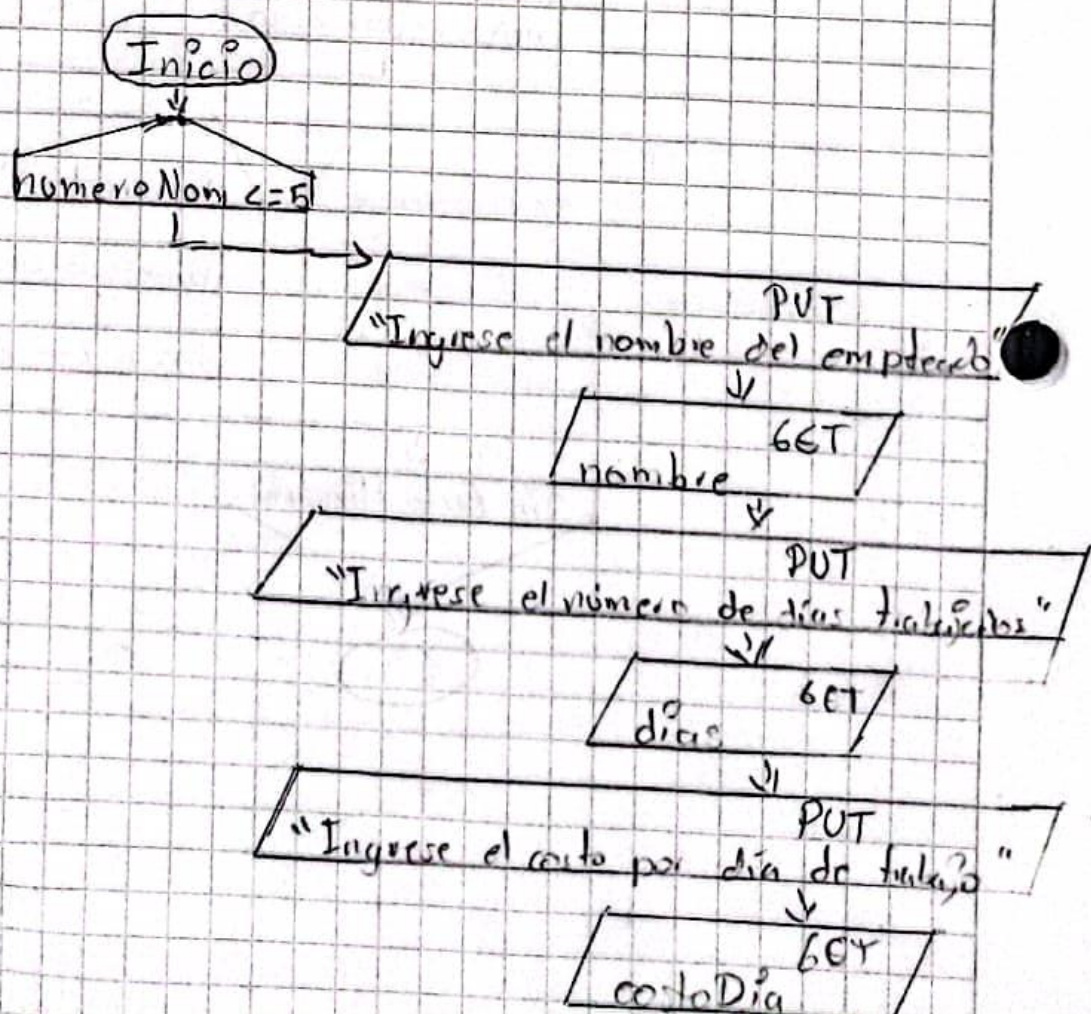 Inicio
numeroNom <=5
PUT
"Ingrese el nombre del empleado"
GET
nombre
PUT
"Ingrese el número de días trabajados"
GET
días
PUT
"Ingrese el costo por día de trabajo"
GET
costoDia